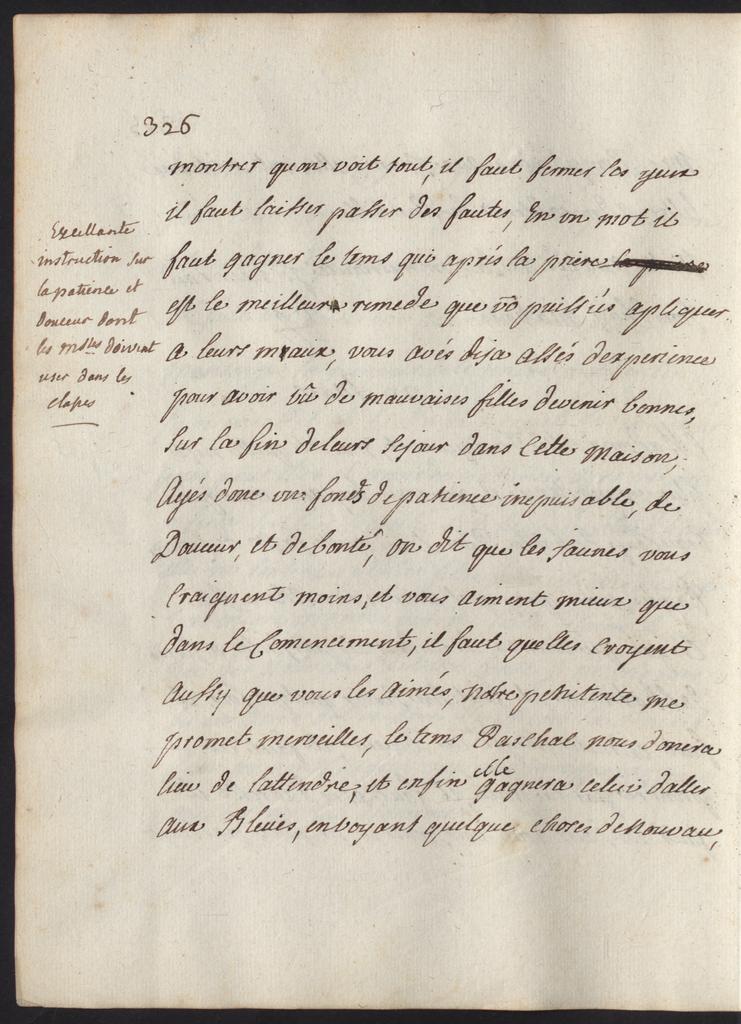 326
montrer quon voit tout, il faut fermer les yeux
il faut laisser passer des fautes, En un mot il
faut gagner le tems qui aprés la priere
est le meilleur remede que vo͞ puissiés apliquer
a leurs maux, vous avés deja assés dexperience
pour avoir vû de mauvaises filles devenir bonnes,
Sur la fin deleurs Sejour dans Cette maison,
Ayés donc un fonds depatience inepuisable, de
Douceur, et debonté, on dit que les Jaunes vous
Craignent moins, et vous aiment mieux que
dans le Comencement, il faut quelles croyent
Aussy que vous les aimés, notre penitente me
promet merveilles, le tems Paschal nous donera
lieu de lattendre, et enfin elle gagnera celui daller
aux Bleües, envoyant quelque choses deNouvau,
Excellante
instruction Sur
la patience et
Douceur dont
les mstes doivent
user dans les
clases